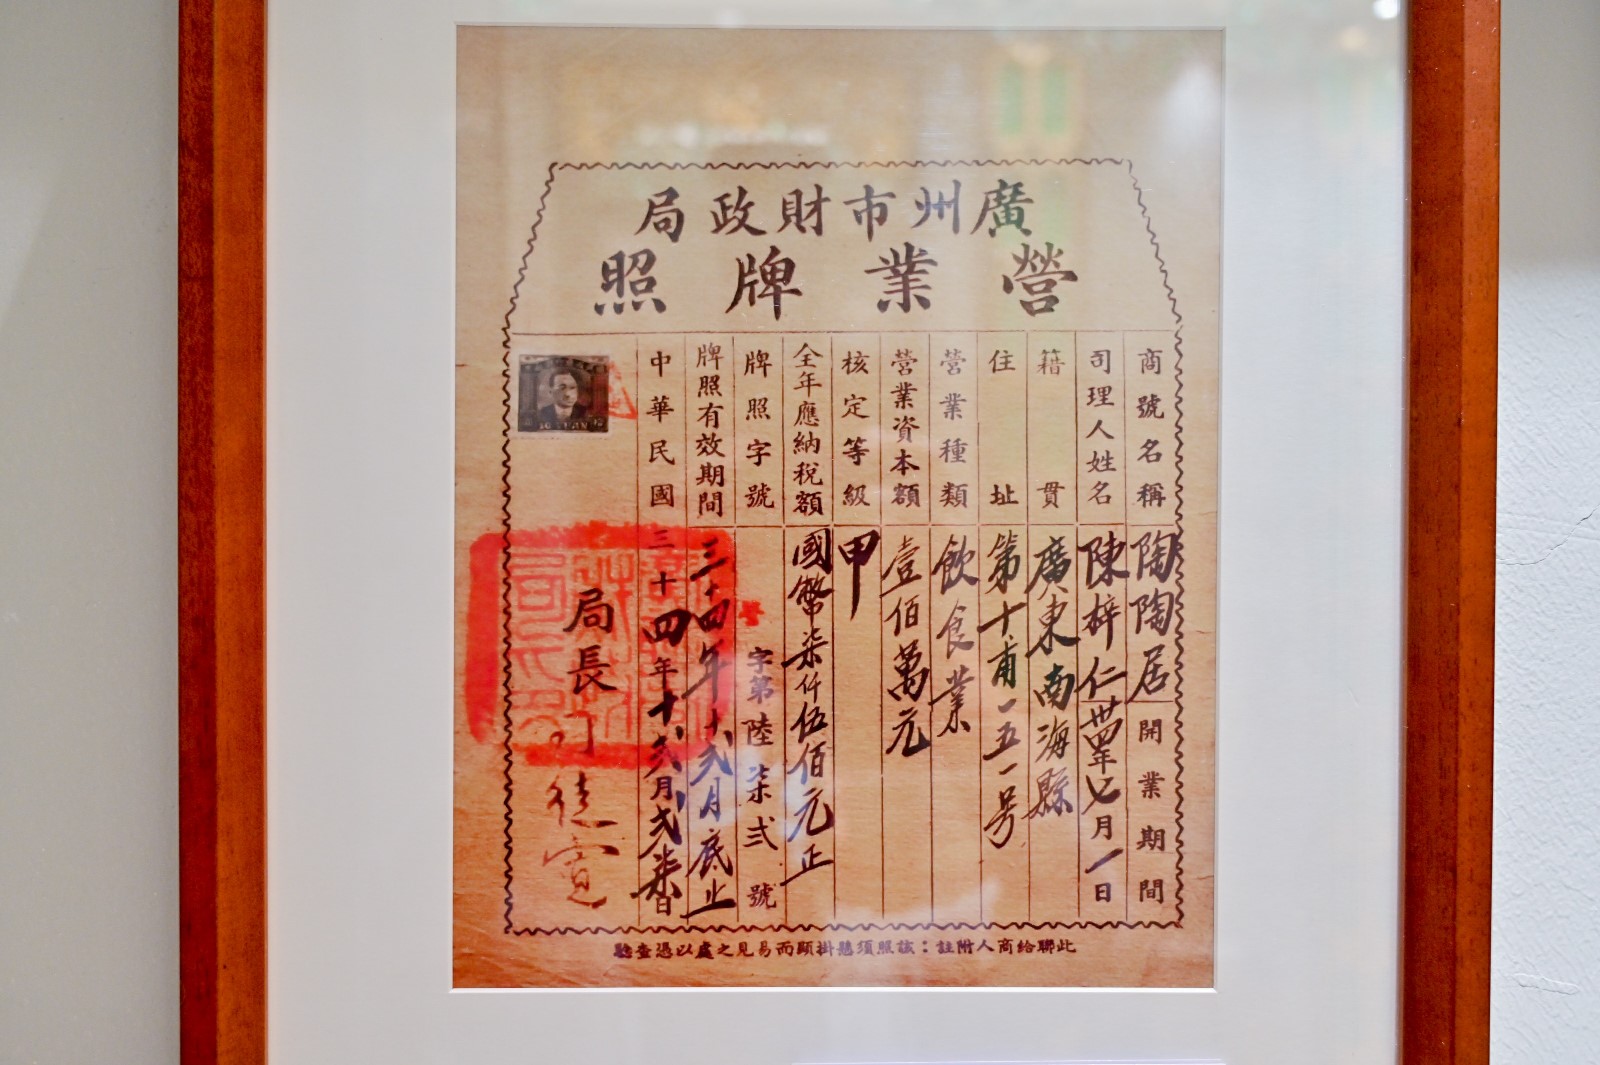 廣州市財政局
營業牌照
商號名稱 陶陶居 開業期間
司理人姓名 陳梓仁 卅四年七月一日
籍貫 廣東南海縣
住址 第十甫一五一号
營業種類 飲食業
營業資本額 壹佰萬元
核定等級 甲
全年應納稅額 國幣柒仟伍佰元正
牌照字號 字第陸柒弍號
牌照有效期間 三十四年十弍月底止
中華民國三十四年十弍月弍柒日
局長
此聯給商人附註：該照須懸掛顯而易見之處以憑查驗